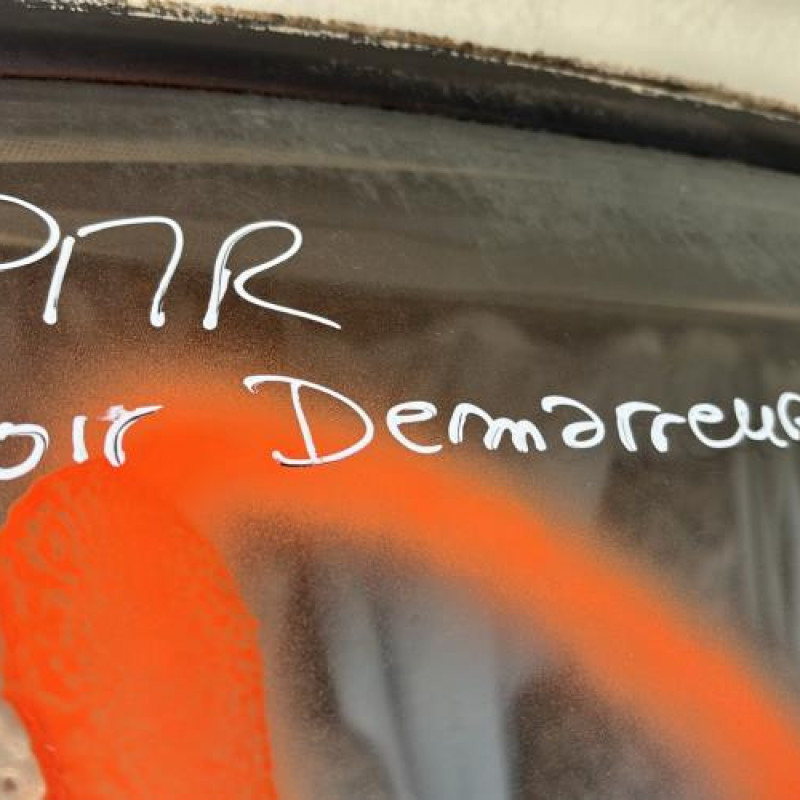 PMR
oir Demarreur